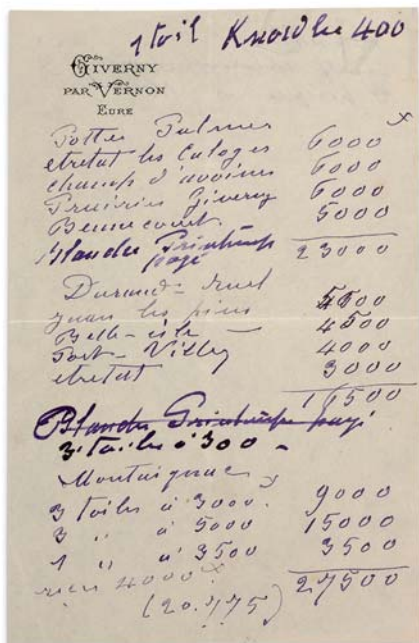 1 toil Knowdler 400
GIVERNY
PAR VERNON
EURE
Potter Palmer x
etretat les Caloges 6000
champ d'avoines 6000
Prairies Giverny 6000
Bennecourt. 5000
Blanche Printemps
payé 23000
Durand-Ruel
juan les pins 4500
Belle-isle — 4500
Port-Villez 4000
etretat 3000
16500
Blanche Printemps payé
3 toiles à 300 -
Montaignac
3 toiles à 3000. 9000
3 " à 5000 15000
1 " à 3500 3500
rien 4000 x 27500
(20.775)